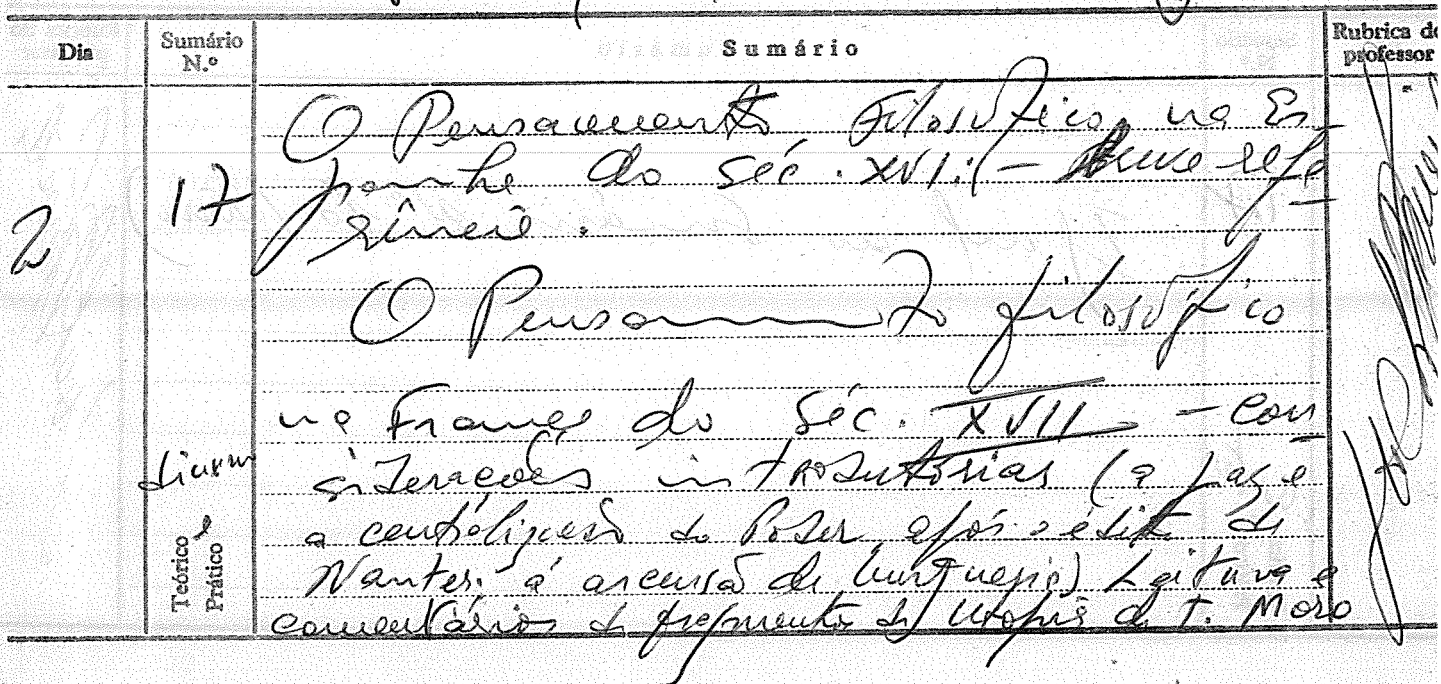 Dia Sumário N.º Sumário Rubrica do professor
O Pensamento Filosófico na Es-
panha do séc. XVI: (- Breve refe-
2 17 rência.
O Pensamento filosófico
na França do Séc. XVII - con-
siderações introdutórias (a paz e
a centralização do Poder, após o édito de
Nantes; a ascensão da burguesia) Leitura e
comentários de fragmentos da Utopia de T. Moro
Teórico e Prático